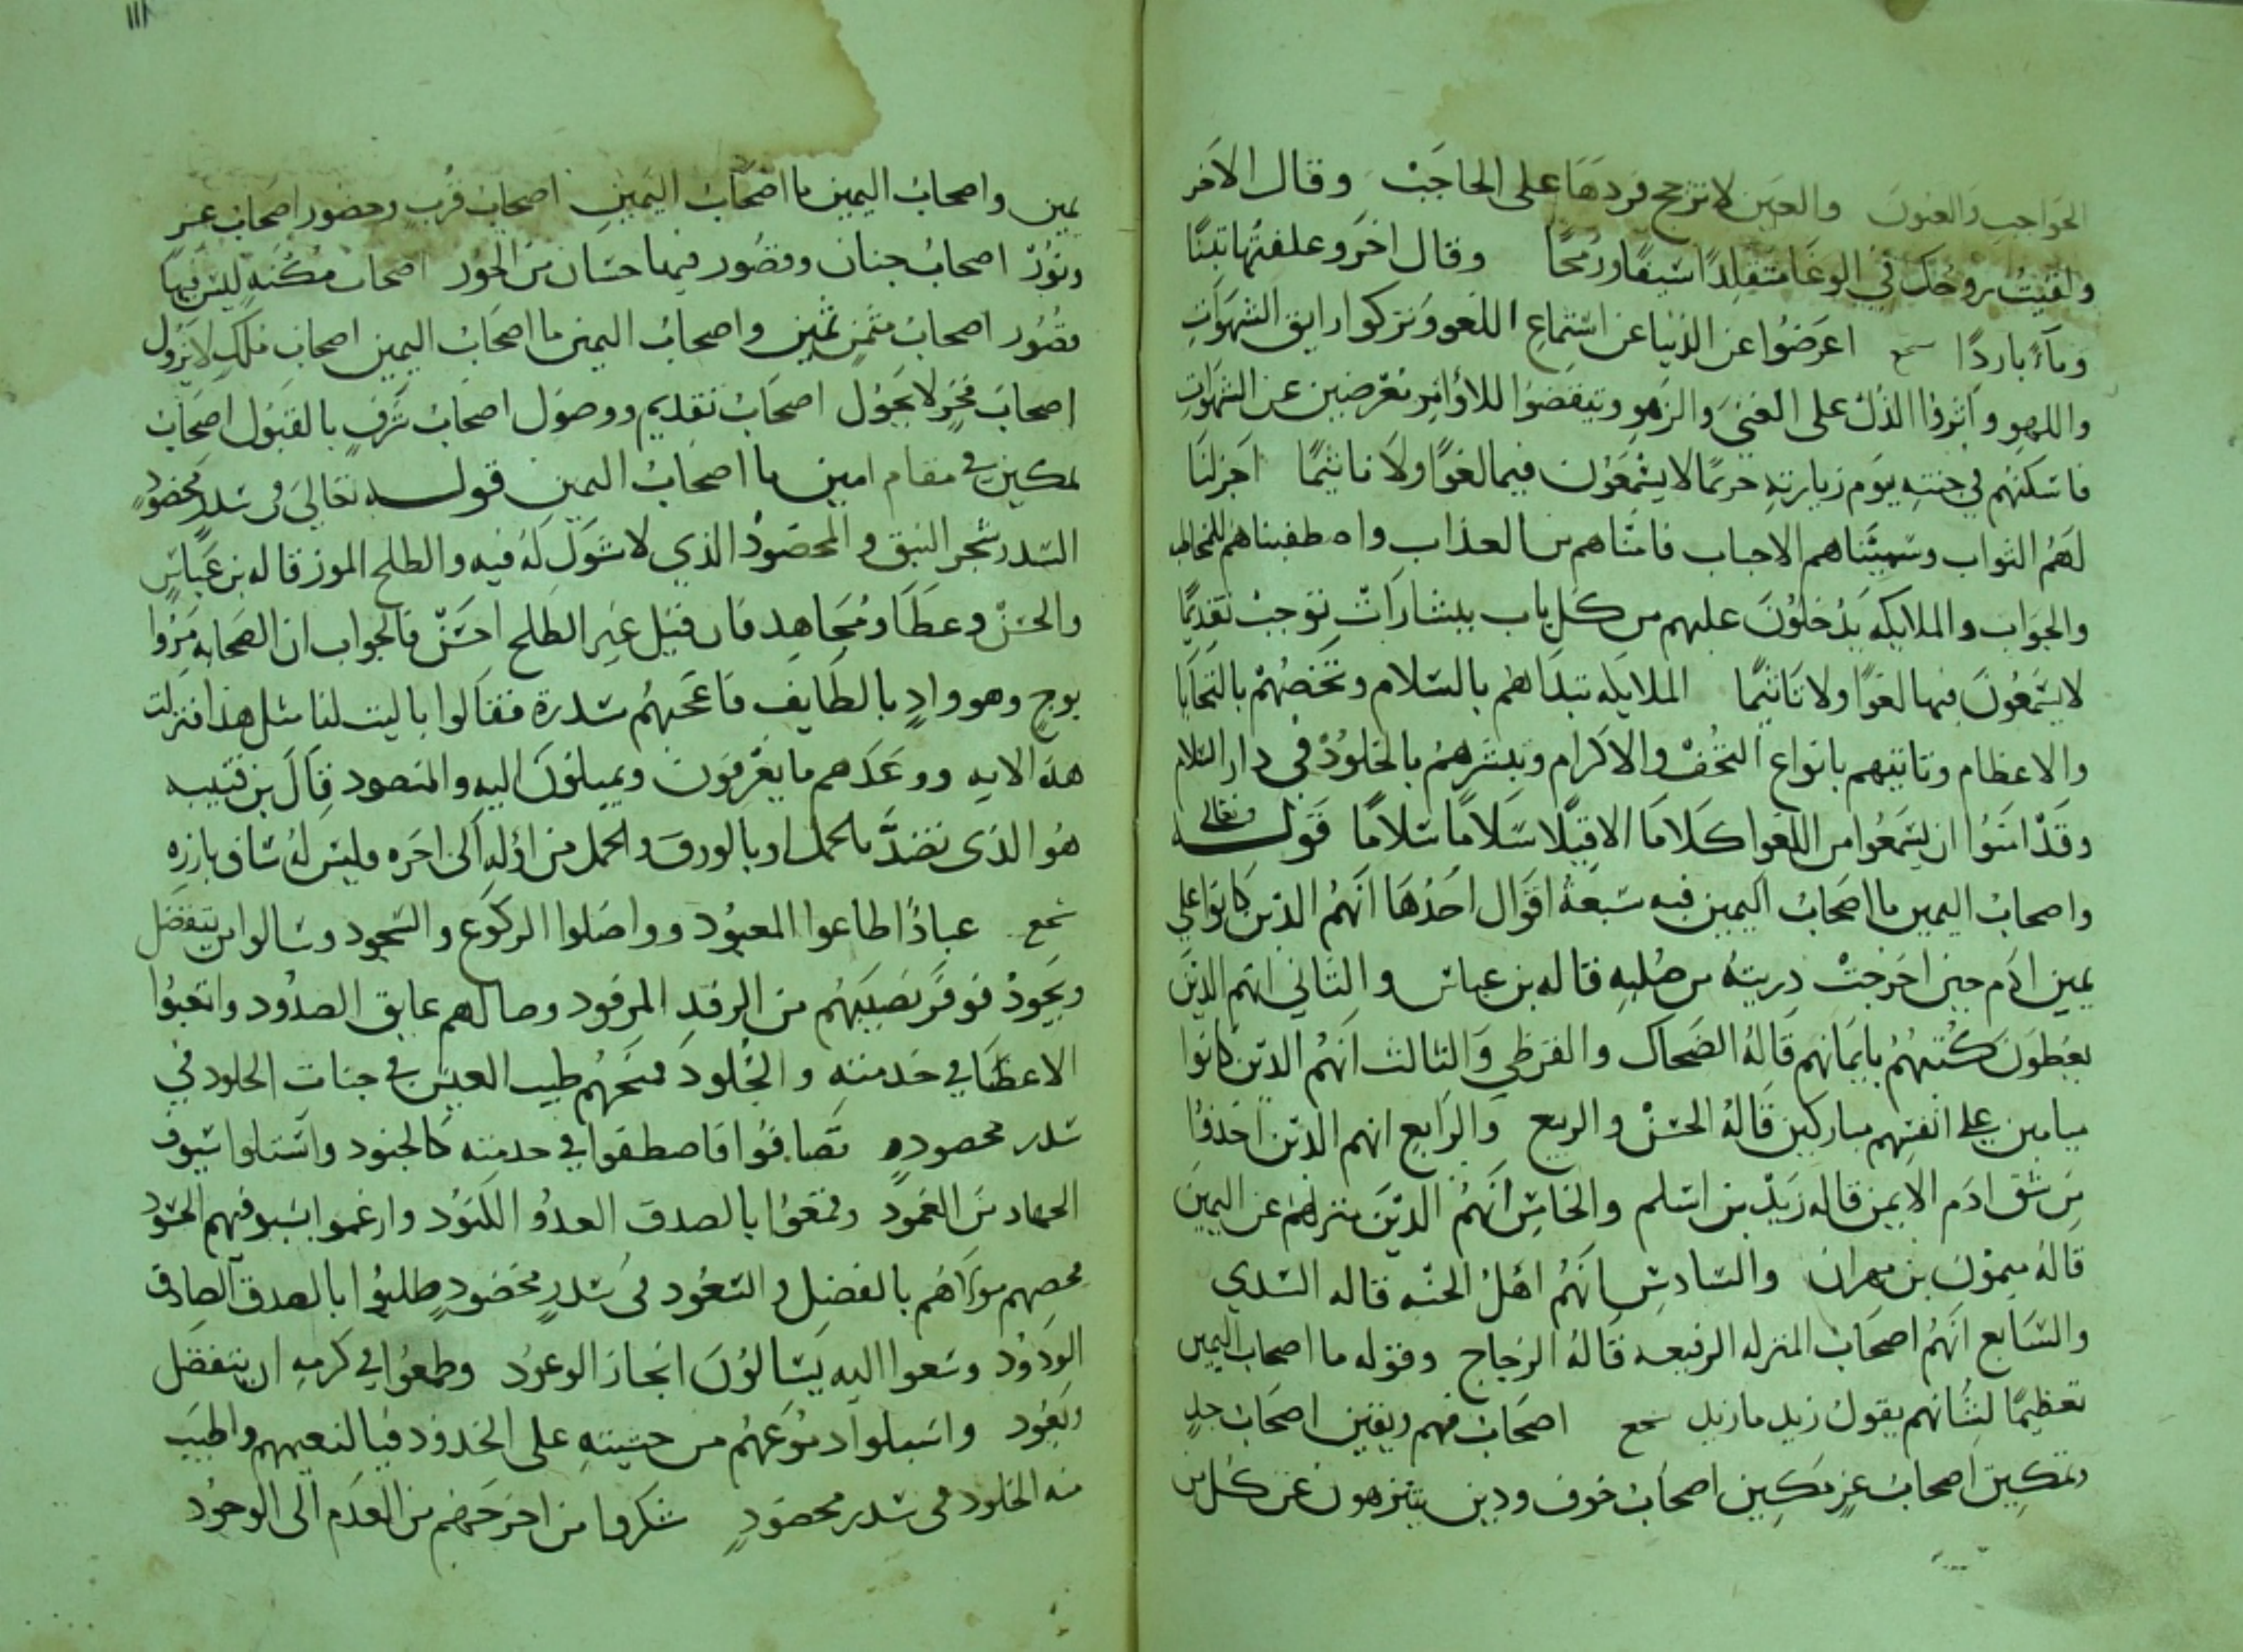 الحواجب والعيون والعين لا تزجج فردها على الحاجب وقال الآخر
ولقيت زوجك في الوغا متقلدا سيفا ورمحا وقال اخر وعلفتها تبنا
وماء باردا سجع اعرضوا عن الدنيا عن استماع اللغو وتركوا رايق الشهوات
واللهو واثروا الذل على الغنى والزهو ويتفضوا للاوامر معرضين عن الشهوات
فاسكنهم في جنته يوم زيارته حريما لا يسمعون فيها لغوا ولا تاثيما اجزلنا
لهم الثواب وسميناهم الاحباب فامناهم من العذاب واصطفيناهم للخطاب
والجواب والملايكه يدخلون عليهم من كل باب ببشارات توجب تقديما
لا يسمعون فيها لغوا ولا تاثيما الملايكه تبداهم بالسلام وتخصهم بالتحايا
والاعظام وتاتيهم بانواع التحف والاكرام وتبشرهم بالخلود في دار السلام
وقد امنوا ان يسمعوا من اللغو كلاما الا قيلا سلاما سلاما قوله تعالى
واصحاب اليمين ما اصحاب اليمين فيه سبعة اقوال احدها انهم الذين كانوا على
يمين ادم حين اخرجت ذريته من صلبه قاله بن عباس والثاني انهم الذين
يعطون كتبهم بايمانهم قاله الضحاك والقرظي والثالث انهم الذين كانوا
ميامين على انفسهم مباركين قاله الحسن والربيع والرابع انهم الذين اخذوا
من شق ادم الايمن قاله زيد بن اسلم والخامس انهم الذين منزلهم عن اليمين
قاله ميمون بن مهران والسادس انهم اهل الجنه قاله السدي
والسابع انهم اصحاب المنزله الرفيعه قاله الزجاج وقوله ما اصحاب اليمين
تعظيما لشانهم يقول زيد ما زيد سجع اصحاب فهم ويقين اصحاب جد
وتمكين اصحاب عز مكين اصحاب خوف ودين يتنزهون عن كل من
يمين واصحاب اليمين ما اصحاب اليمين اصحاب قرب وحضور اصحاب عز
ونور اصحاب جنان وقصور فيها حسان من الحور اصحاب مكنه ليس فيها
قصور اصحاب مثمن ثمين واصحاب اليمين ما اصحاب اليمين اصحاب ملك لا يزول
اصحاب فخر لا يحول اصحاب تقديم ووصول اصحاب شرف بالقبول اصحاب
تمكين في مقام امين ما اصحاب اليمين قوله تعالى في سدر مخضود
السدر شجر النبق والمخضود الذي لا شوك له فيه والطلح الموز قاله بن عباس
والحسن وعطا ومجاهد فان قيل غير الطلح احسن فالجواب ان الصحابه مروا
بوج وهو واد بالطايف فاعجبهم سدرة فقالوا يا ليت لنا مثل هذا فنزلت
هذه الايه ووعدهم ما يعرفون ويميلون اليه والمنضود قال بن قتيبه
هو الذي نضد بالحمل او بالورق والحمل من اوله الى اخره فليس له ساق بارزه
سجع عبادا اطاعوا المعبود وواصلوا الركوع والسجود وسالوا من يتفضل
ويجود فوفر نصيبهم من الرفد المرفود وصالهم عايق الصدود واتعبوا
الاعضا في خدمته والجلود فمنحهم طيب العيش في جنات الخلود في
سدر مخضود تصافوا فاصطفوا في خدمته كالجنود واستلوا سيوف
الجهاد من الغمود وقمعوا بالصدق العدو الكنود وارغموا بسيوفهم الحسود
فخصهم مولاهم بالفضل والسعود في سدر مخضود طلبوا بالصدق الصادق
الودود وسعوا اليه يسالون انجاز الوعود وطمعوا في كرمه ان يتفضل
ويعود واسبلوا دموعهم من خشيته على الخدود فيا لنعيمهم واطيب
منه الخلود في سدر مخضود شكروا من اخرجهم من العدم الى الوجود